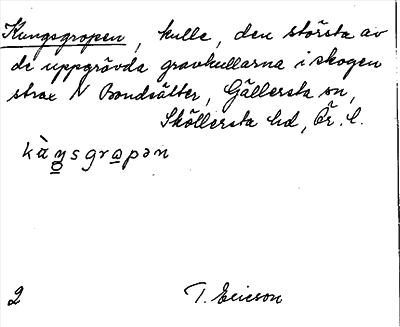 Kungsgropen, kulle, den största av
de uppgrävda gravkullarna i skogen
strax N Bondsätter, Gällersta sn,
Sköllersta hd, Ör. l.
kàŋsgrapən
2 T. Ericson